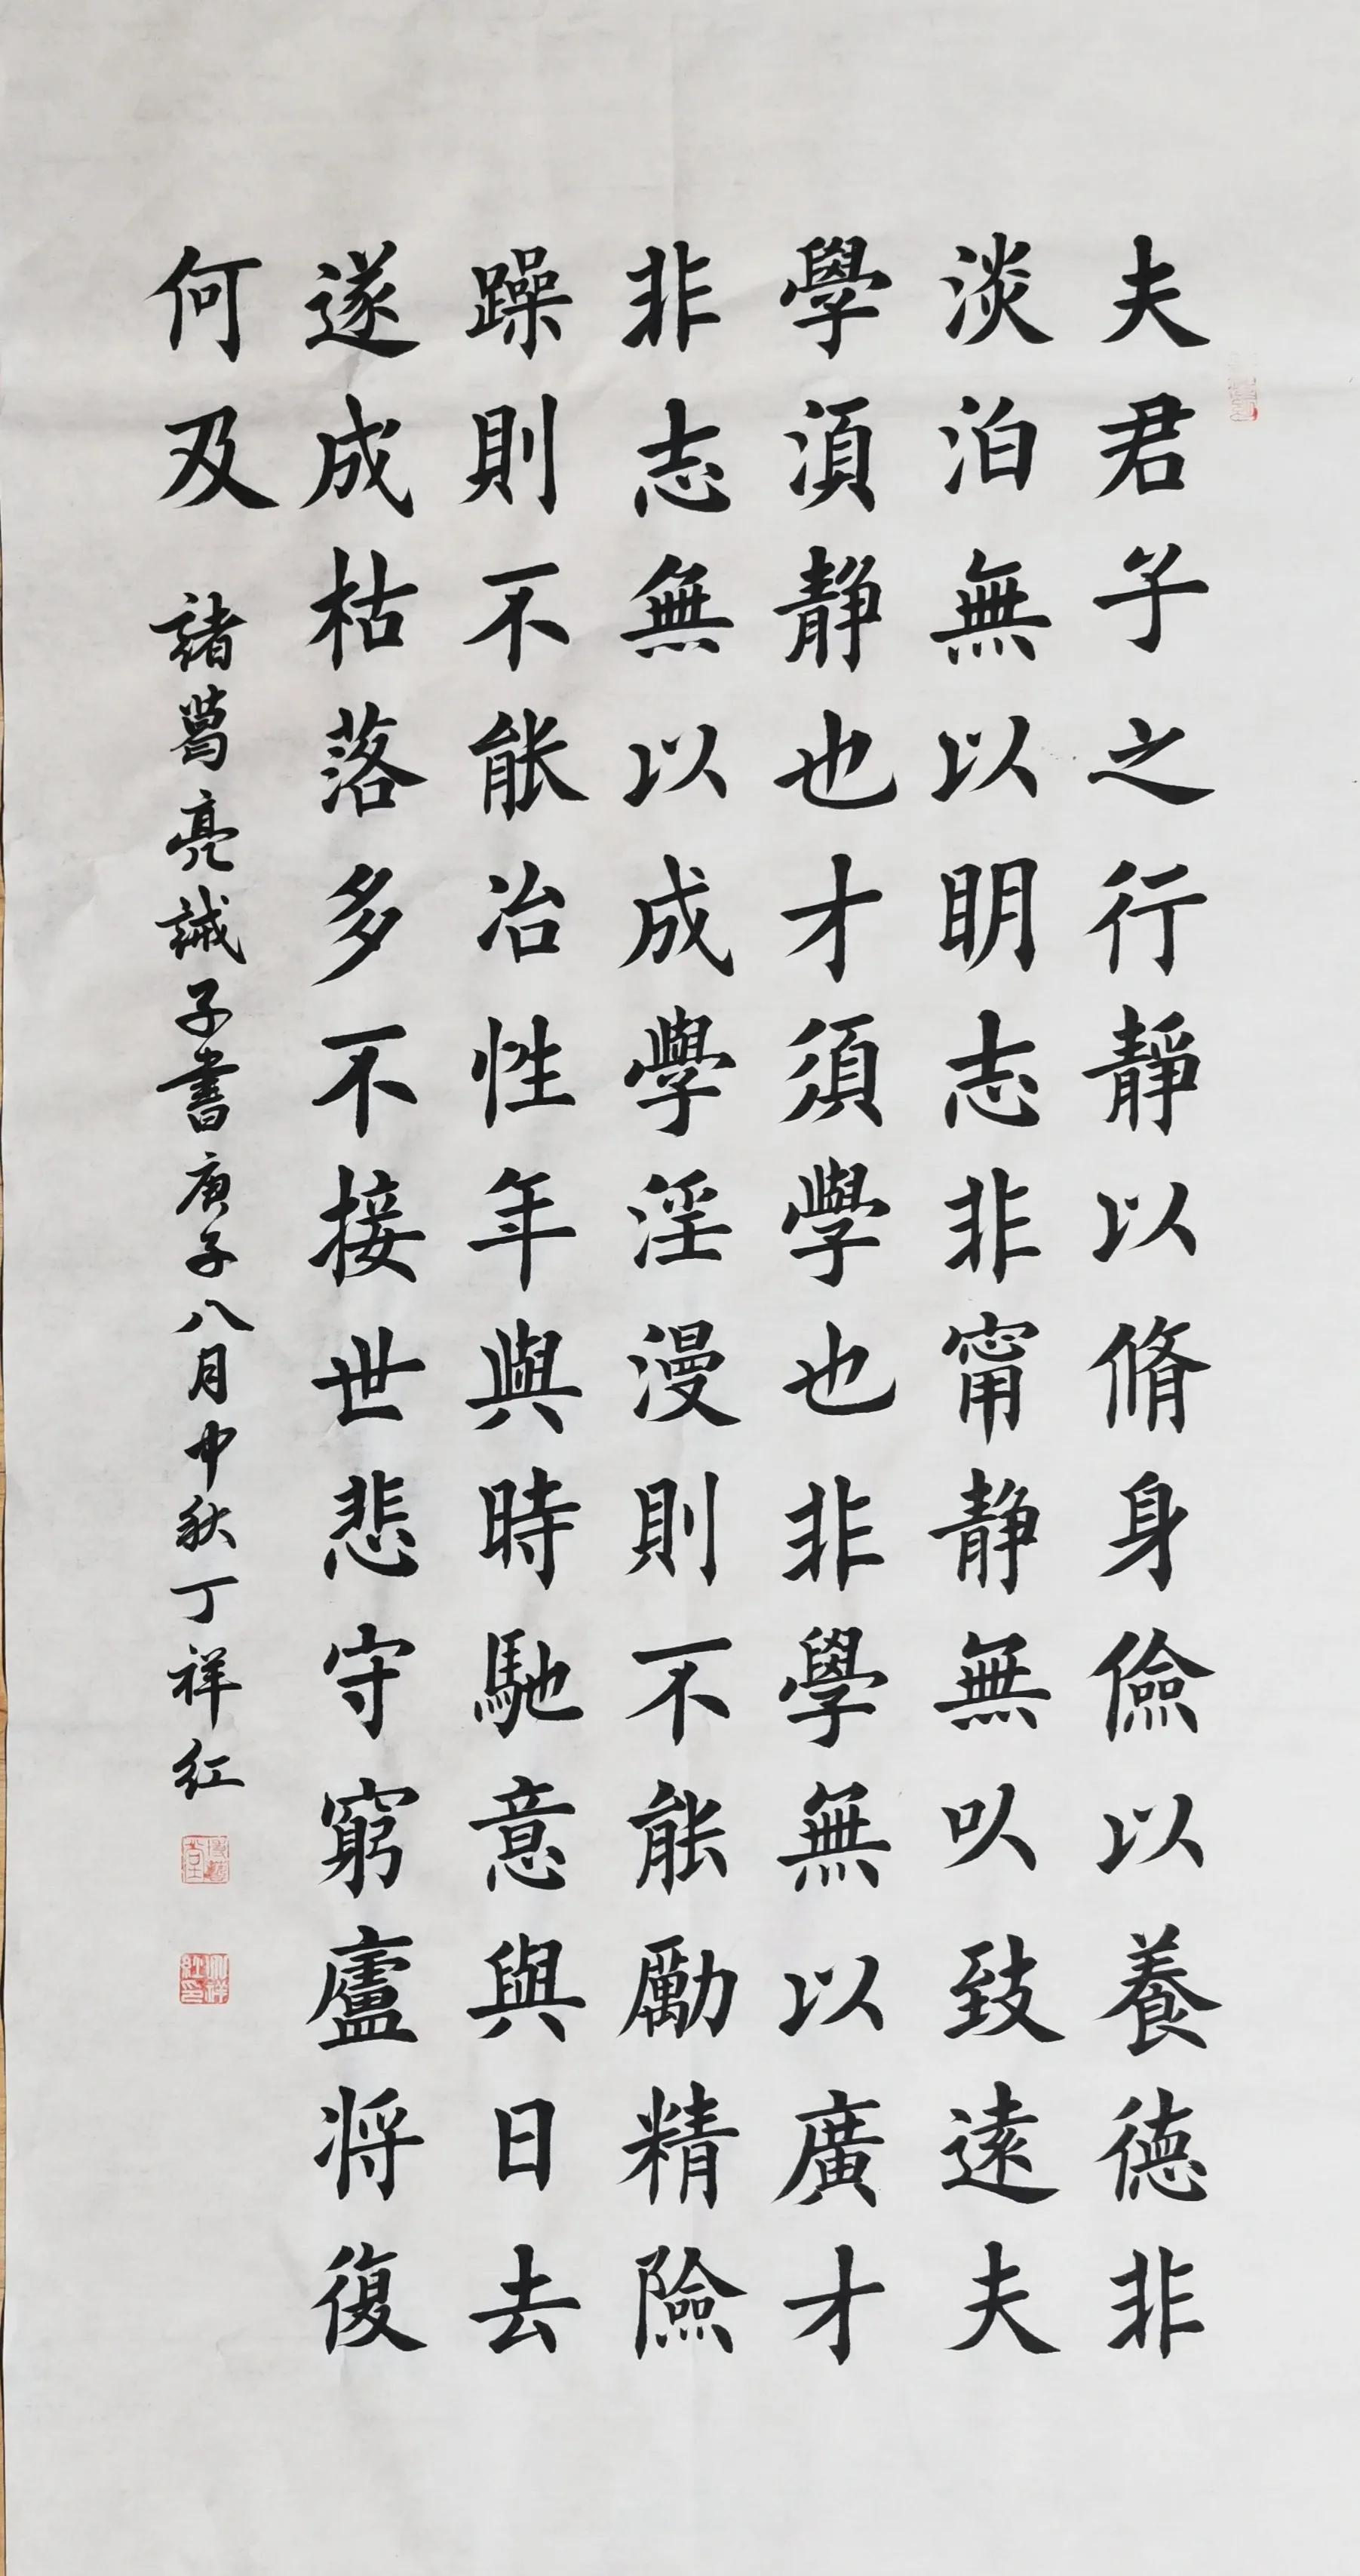 夫君子之行靜以脩身儉以養德非
淡泊無以明志非甯静無以致遠夫
學湏静也才須學也非學無以廣才
非志無以成學淫漫則不能勵精險
躁則不能冶性年與時馳意與日去
遂成枯落多不接世悲守窮廬将復
何及
諸葛亮誡子書庚子八月中秋丁祥红